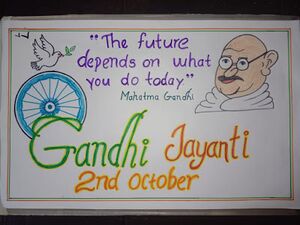 "The future
depends on what
you do today"
Mahatma Gandhi
Gandhi Jayanti
2nd October